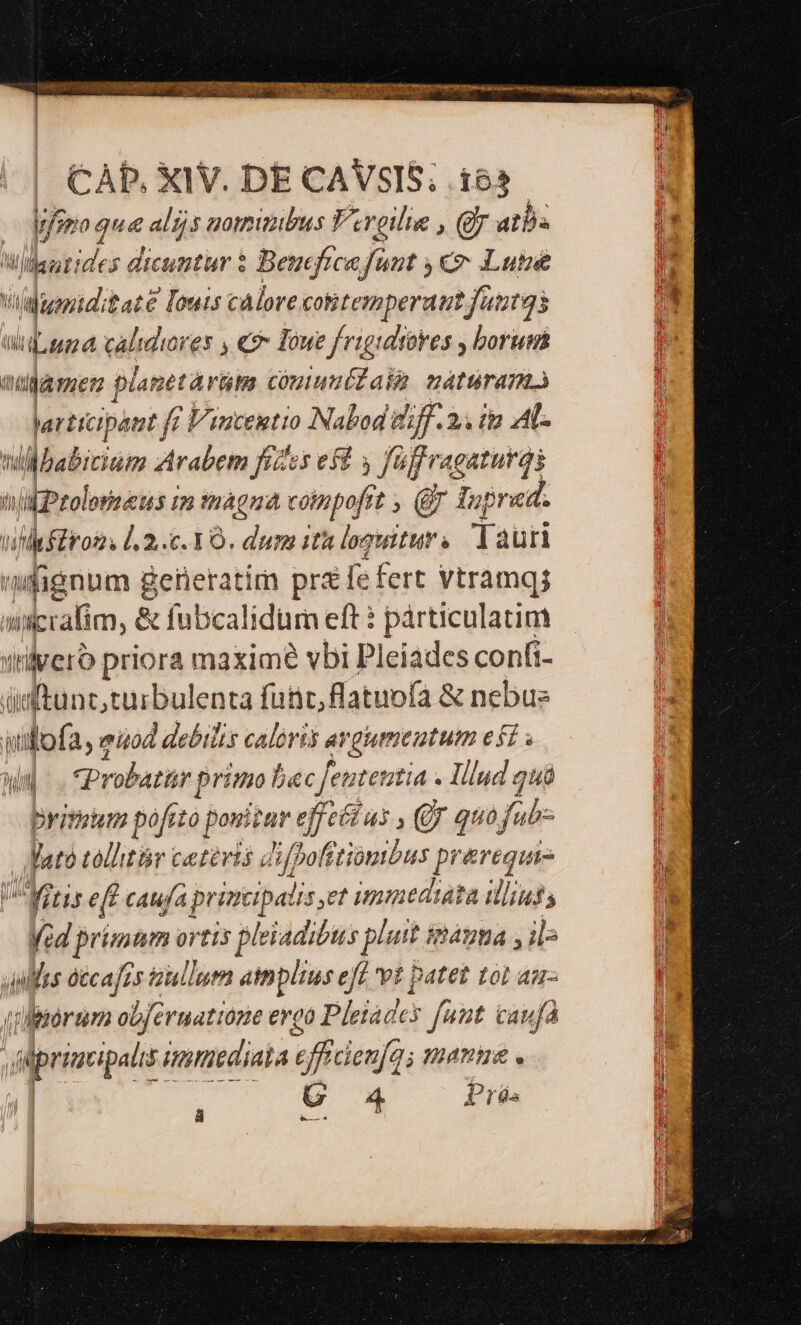 CAP. XIV. DE CAVSIS. 103
que alijs nominibus Vergiliæ, & ath-
lantides dicuntur: Beneficæ sunt, & Lunæ
humiditate Iouis calore contemperant suntq;
Luna calidiores, & Ioue frigidiores, horum
tamen planetarum coniunctam naturam
participant si Vincentio Nabod diff. 2. in Al-
habicium Arabem fides est, suffragaturq;
Ptolomæus in magna composit, & Inpred.
l. 2. c. 10. dum ita loquitur. Tauri
signum generatim præ se fert vtramq;
& subcalidum est: particulatim
vero priora maximè vbi Pleiades consi-
stunt, turbulenta sunt, flatuosa & nebu-
losa, quod debilis caloris argumentum est.
Probatur primo hæc sententia. Illud quo
primum posito ponitur effectus, & quo sub-
lato tollitur cæteris dispositionibus prærequi-
sitis est causa principalis, et immediata illius,
sed primum ortis pleiadibus pluit manna, il-
lis occasis nullum amplius est vt patet tot an-
norum obseruatione ergo Pleiades sunt causa
principalis immediata efficiensq; mannæ.
G 4 Præ-